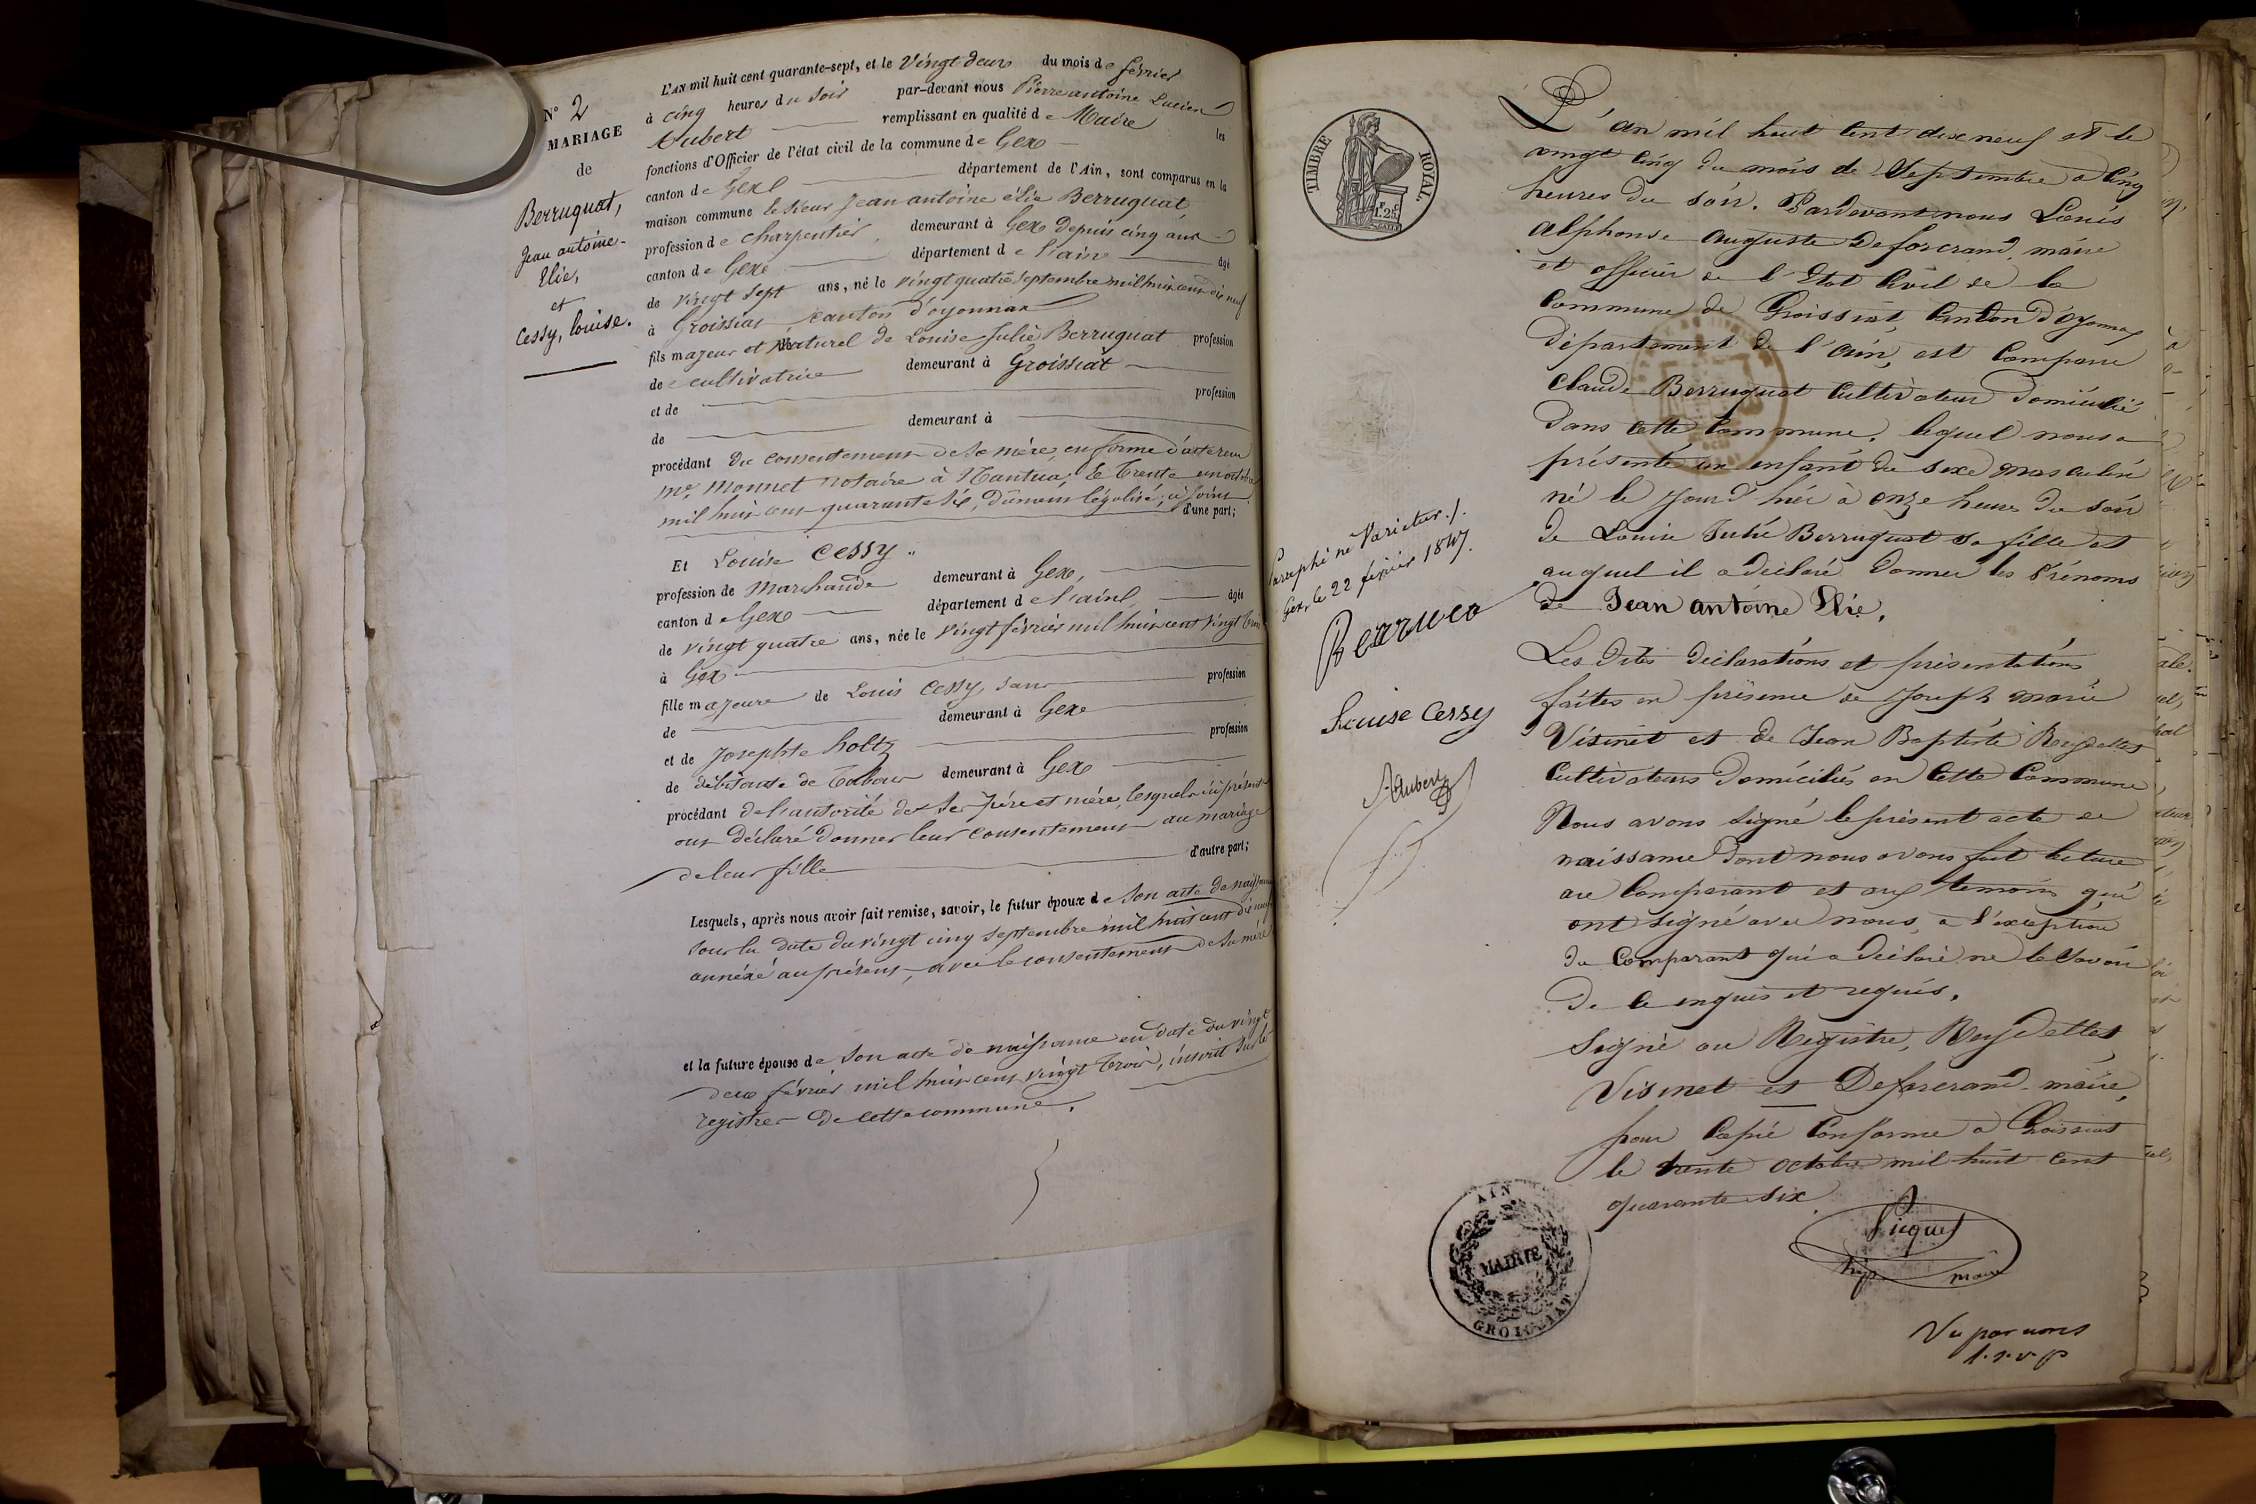 N° 2
MARIAGE
de
Berruquat,
Jean antoine-
Elie,
et
Cessy, louise.
L'AN mil huit cent quarante-sept, et le Vingt deux du mois de février
à cinq heures du Soir par-devant nous Pierre antoine Lucien
Aubert remplissant en qualité de Maire les
fonctions d'Officier de l'état civil de la commune de Gex
canton de Gex département de l'Ain, sont comparus en la
maison commune le sieur Jean antoine élie Berruquat
profession de charpentier, demeurant à Gex depuis cinq ans
canton de Gex département de l'ain âgé
de vingt sept ans, né le vingt quatre septembre mil huit cent dix neuf
à Groissiat canton d'oyonnax
fils majeur et naturel de Louise Julie Berruquat profession
de cultivatrice demeurant à Groissiat
et de profession
de demeurant à
procédant du consentement de sa mère, en forme d'acte reçu
Me Monnet notaire à Nantua, le trente un octobre
mil huit cent quarante six, dûment légalisé, à joint
d'une part;
Et Louise Cessy
profession de Marchande demeurant à Gex,
canton de Gex département de l'ain âgée
de vingt quatre ans, née le vingt février mil huit cent vingt trois
à Gex
fille majeure de Louis Cessy, sans profession
de demeurant à Gex
et de Josephte holtz profession
de débitante de Tabac demeurant à Gex
procédant de l'autorité de ses père et mère, lesquels ici présents
ont déclaré donner leur consentement au mariage
de leur fille d'autre part;
Lesquels, après nous avoir fait remise, savoir, le futur époux de son acte de naissance
sous la date du vingt cinq septembre mil huit cent dix neuf
annéxé au présent, avec le consentement de sa mère
et la future épouse de son acte de naissance en date du vingt
deux février mil huit cent vingt trois, inscrit sur les
registres de cette commune.
TIMBRE ROYAL
1.25
Paraphé ne Varietur ./.
Gex, le 22 février 1847.
Louise Cessy
Aubert
L'an mil huit cent dix neuf et le
vingt cinq du mois de Septembre à cinq
heures du soir. Pardevant nous Louis
alphonse auguste Deforcrand, maire
et officier de l'Etat Civil de la
Commune de Groissiat, Canton d'Oyonnax
Département de l'ain, est Comparu
Claude Berruquat Cultivateur Domicilié
Dans Cette Commune, lequel nous a
présenté un enfant du sexe masculin
né le jour d'hier à onze heures du soir
de Louise Julie Berruquat sa fille et
auquel il a déclaré donner les Prénoms
de Jean antoine Elie,
Les dites déclarations et présentations
faites en présence de Joseph marie
Visinet et de Jean Baptiste Reydellet
Cultivateurs Domiciliés en Cette Commune
Nous avons signé le présent acte de
naissance dont nous avons fait lecture
au Comparant et aux temoins qui
ont signé avec nous, a l'exception
du Comparant qui a déclaré ne le savoir
de ce enquis et requis.
Signé au Registre, Reydellet,
Visinet et Deforcrand maire,
pour Copie Conforme a Groissiat
le trente octobre mil huit cent
quarante six
Picquet
maire
AIN
MAIRIE
GROISSIAT
Vu par nous